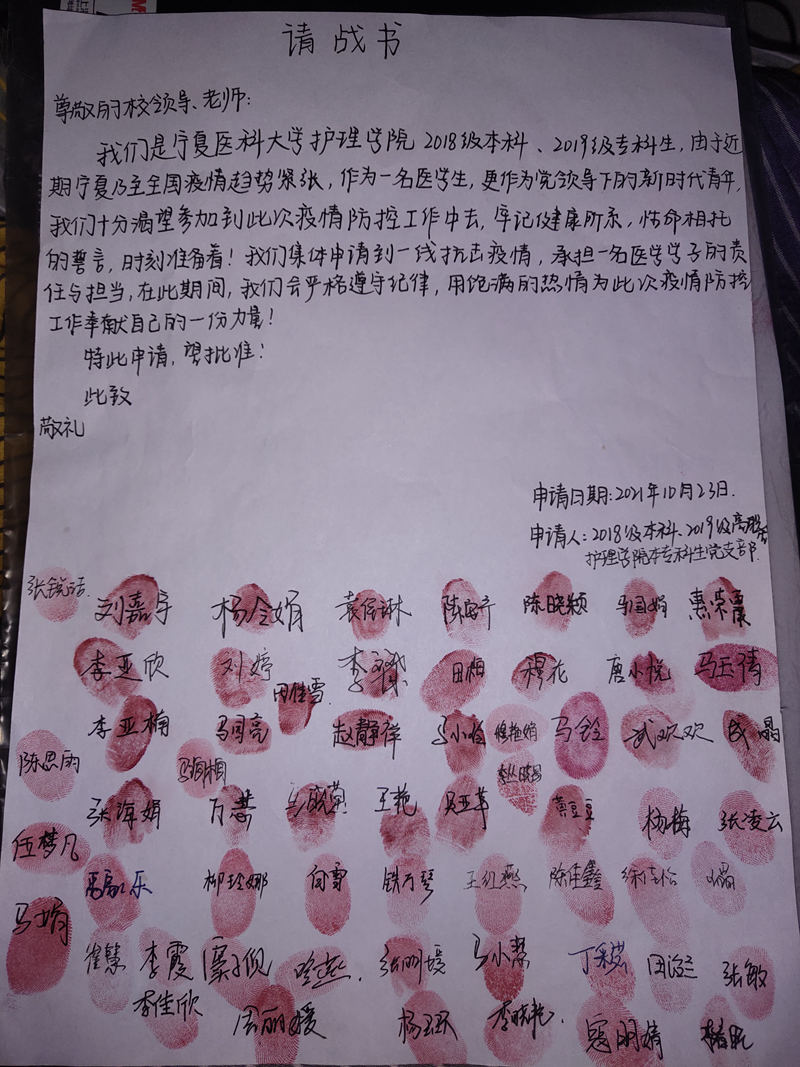 请战书
尊敬的校领导、老师:
我们是宁夏医科大学护理学院2018级本科、2019级专科生,由于近
期宁夏乃至全国疫情趋势紧张,作为一名医学生,更作为党领导下的新时代青年,
我们十分渴望参加到此次疫情防控工作中去,牢记健康所系,性命相托
的誓言,时刻准备着!我们集体申请到一线抗击疫情,承担一名医学学子的责
任与担当,在此期间,我们会严格遵守纪律,用饱满的热情为此次疫情防控
工作奉献自己的一份力量!
特此申请,望批准!
此致
敬礼
申请日期:2021年10月23日.
申请人:2018级本科、2019级高
护理学院本专科生党支部.
刘嘉宇 杨令娟 陈晓颖 马国娟
李亚欣 刘婷 田相 穆花 唐小悦 马玉倩
田佳雪
李亚楠 马国亮 赵静祥 马铃 武欢欢 成晶
陈思雨 马桐相
张海娟 万慧 王艳 黄豆豆 杨梅 张凌云
伍梦凡
柳玲娜 向雪 铁万琴 王红燕 陈佳鑫 徐佳怡
马娟
崔慧 李霞 张明媛 马小慧 张敏
李佳欣 周丽媛 李晓艳 寇明婧